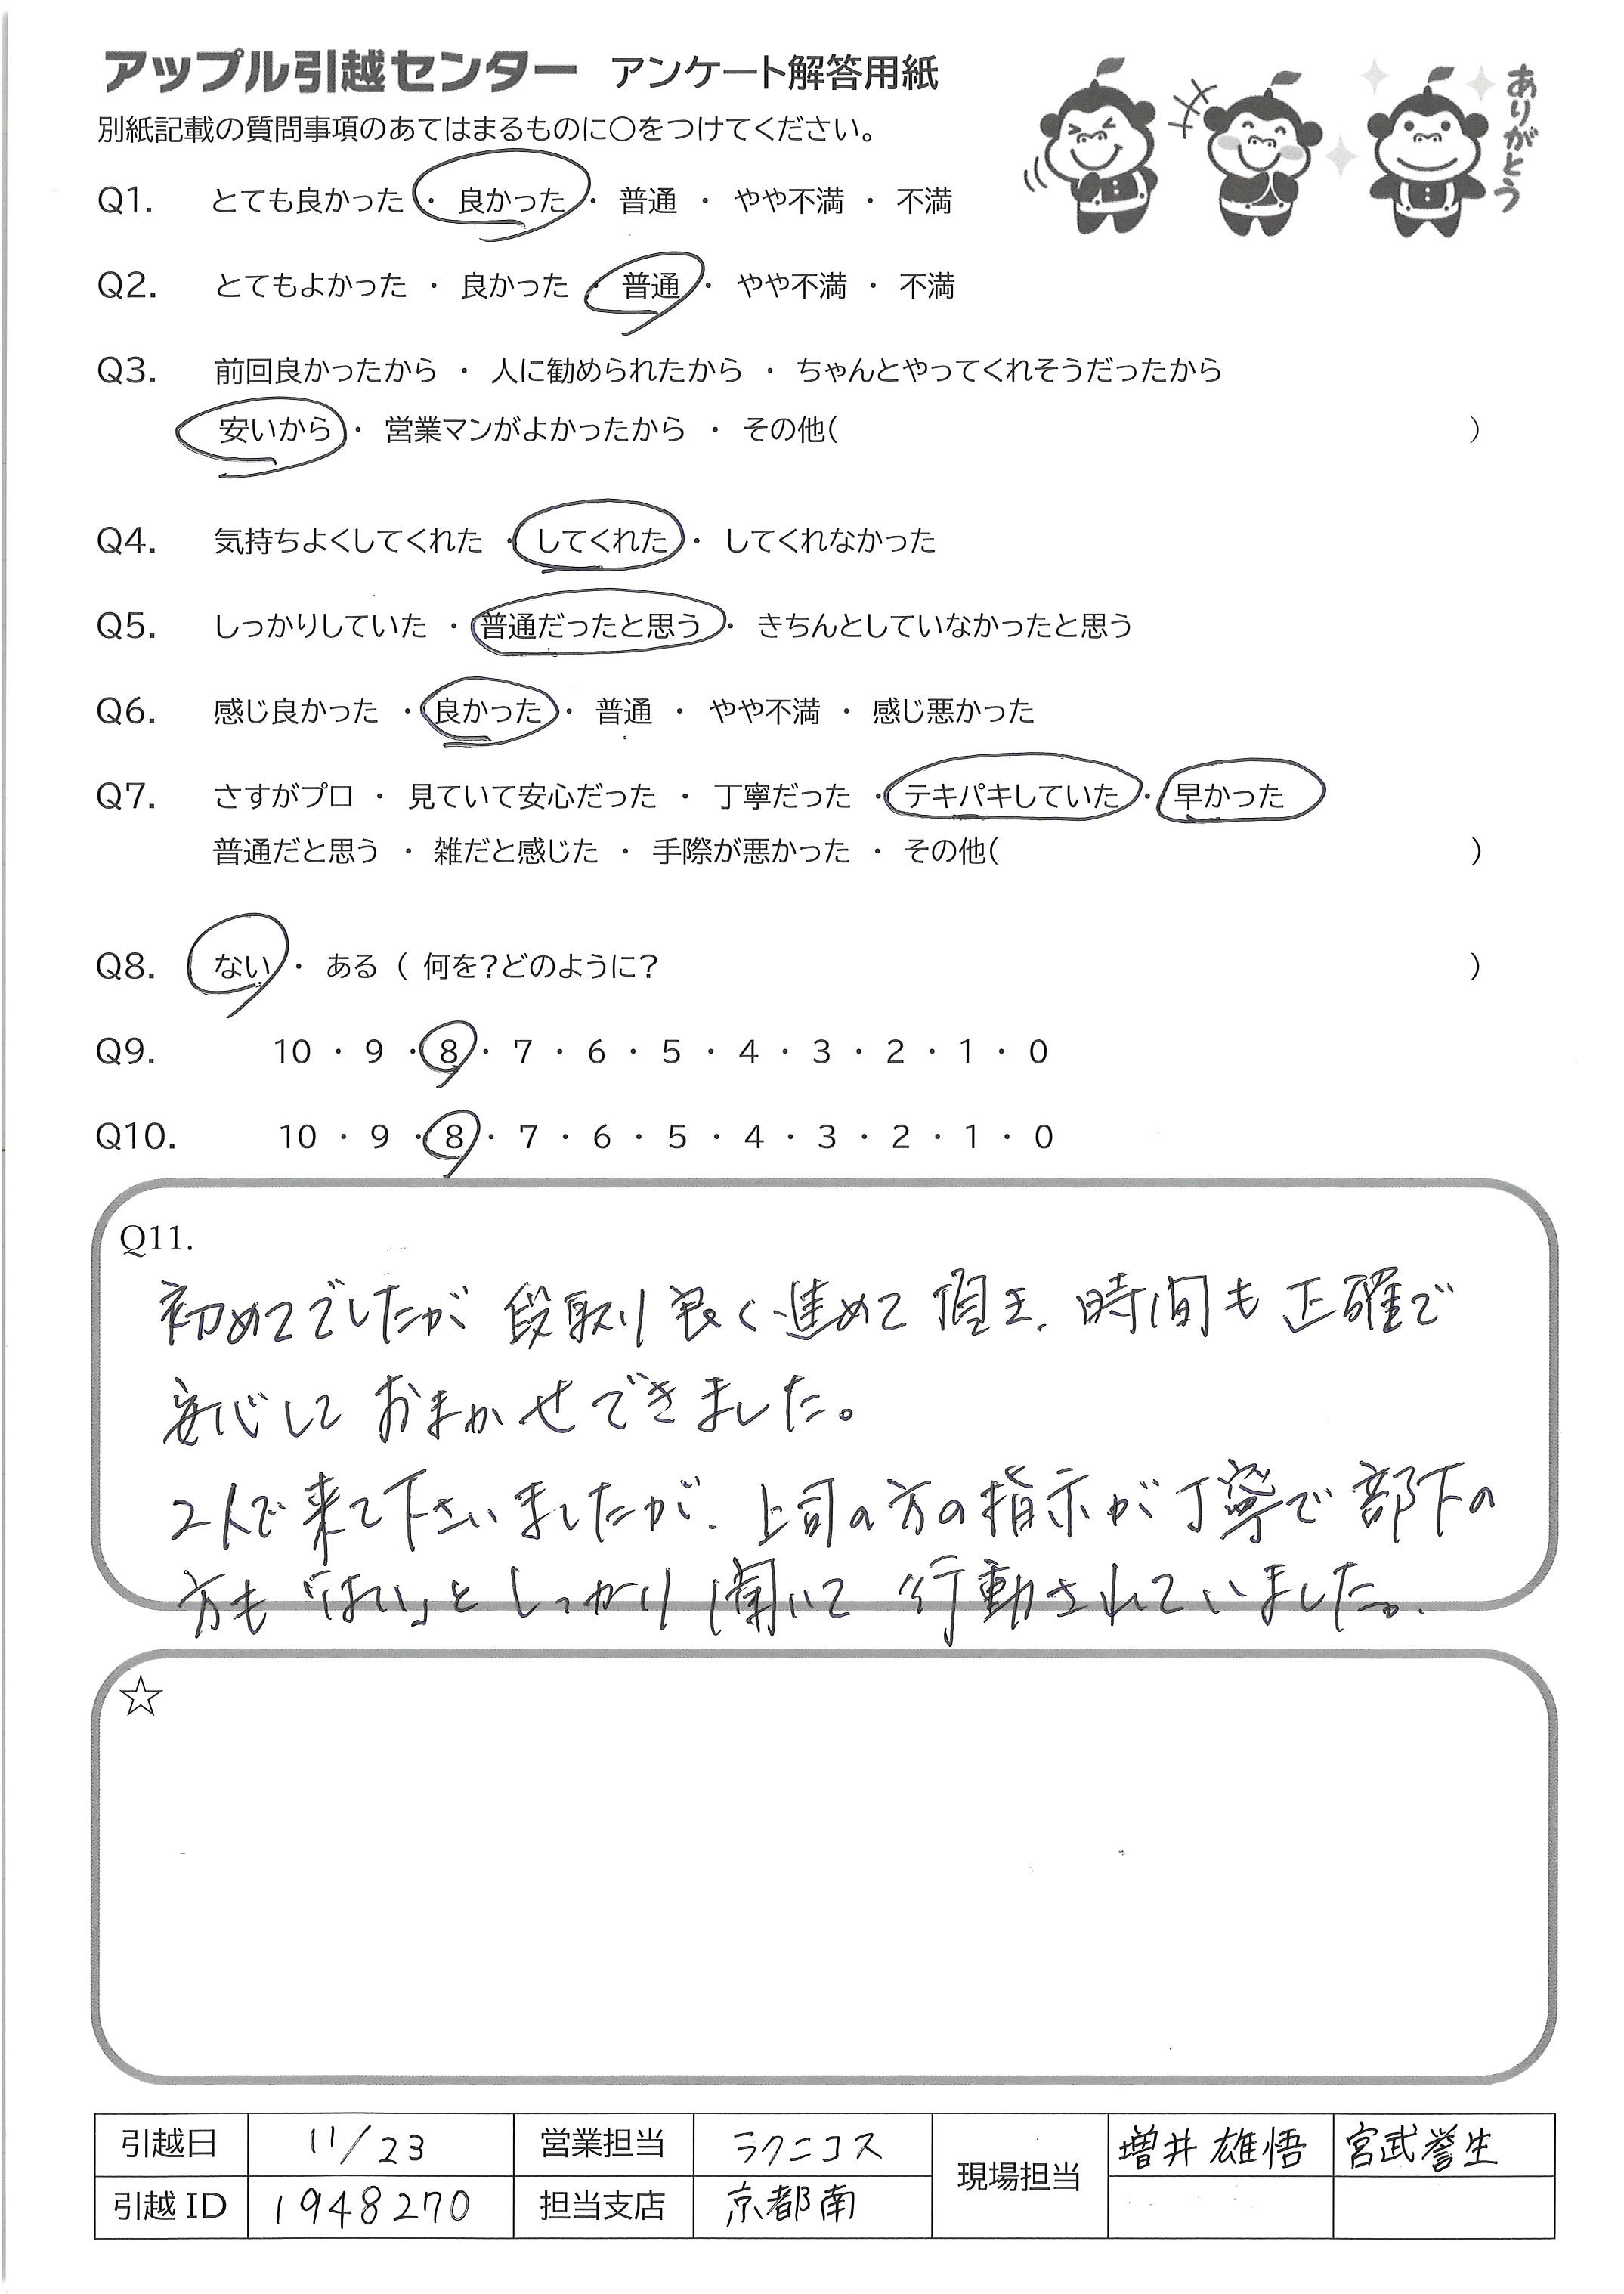 アップル引越センター アンケート解答用紙
ありがとう
別紙記載の質問事項のあてはまるものに○をつけてください。
Q1. とても良かった ・ 良かった ・ 普通 ・ やや不満 ・ 不満
Q2. とてもよかった ・ 良かった ・ 普通 ・ やや不満 ・ 不満
Q3. 前回良かったから ・ 人に勧められたから ・ ちゃんとやってくれそうだったから
安いから ・ 営業マンがよかったから ・ その他( )
Q4. 気持ちよくしてくれた ・ してくれた ・ してくれなかった
Q5. しっかりしていた ・ 普通だったと思う ・ きちんとしていなかったと思う
Q6. 感じ良かった ・ 良かった ・ 普通 ・ やや不満 ・ 感じ悪かった
Q7. さすがプロ ・ 見ていて安心だった ・ 丁寧だった ・ テキパキしていた ・ 早かった
普通だと思う ・ 雑だと感じた ・ 手際が悪かった ・ その他( )
Q8. ない ・ ある ( 何を?どのように? )
Q9. 10 ・ 9 ・ 8 ・ 7 ・ 6 ・ 5 ・ 4 ・ 3 ・ 2 ・ 1 ・ 0
Q10. 10 ・ 9 ・ 8 ・ 7 ・ 6 ・ 5 ・ 4 ・ 3 ・ 2 ・ 1 ・ 0
Q11.
初めてでしたが 段取り良く進めて頂き、時間も正確で
安心して おまかせできました。
2人で来て下さいましたが、上司の方の指示が丁寧で部下の
方も「はい」としっかり聞いて 行動されていました。
☆
引越日 11/23 営業担当 ラクニコス 現場担当 増井 雄悟 宮武誉生
引越ID 1948270 担当支店 京都南